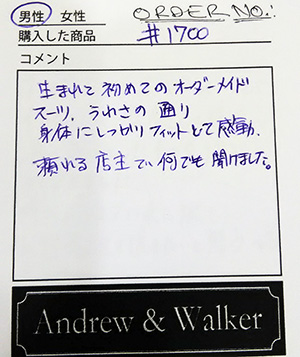 男性 女性 ORDER NO.:
購入した商品 #1700
コメント
生まれて初めてのオーダーメイド
スーツ、うわさの通り
身体にしっかりフィットして感動。
頼れる店主でい何でも聞けました。
Andrew & Walker